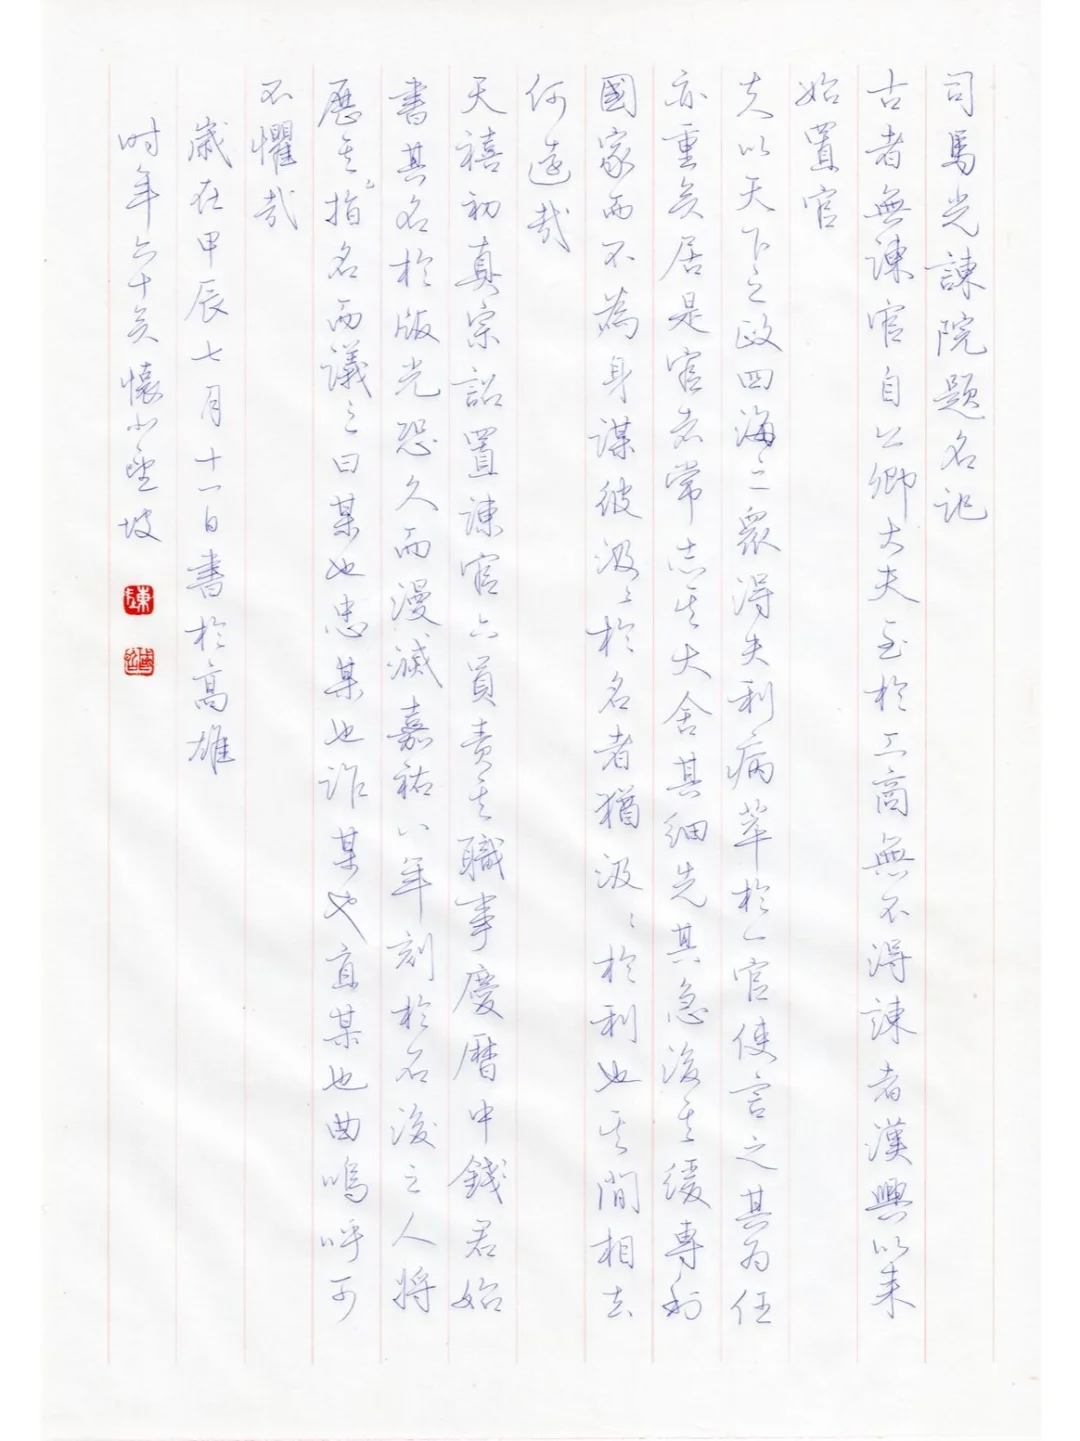 司馬光諫院題名記
古者無諫官自公卿大夫至於工商無不得諫者漢興以來
始置官
夫以天下之政四海之眾得失利病萃於一官使言之其為任
亦重矣居是官者常志其大舍其細先其急後其緩專利
國家而不為身謀彼汲汲於名者猶汲汲於利也其間相去
何遠哉
天禧初真宗詔置諫官六員責其職事慶曆中錢君始
書其名於版光恐久而漫滅嘉祐八年刻於石後之人將
歷其指名而議之曰某也忠某也詐某也直某也曲嗚呼可
不懼哉
歲在甲辰七月十一日書於高雄
時年六十矣懷小坡
陳